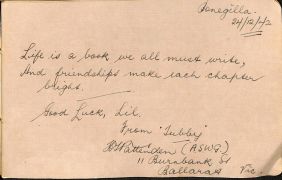 Bonegilla.
24/12/42
Life is a book we all must write,
And friendships make each chapter
bright.
Good Luck, Lil.
From 'Tubby'
Pattenden (A.S.W.G.)
11 Burnbank St
Ballarat Vic.